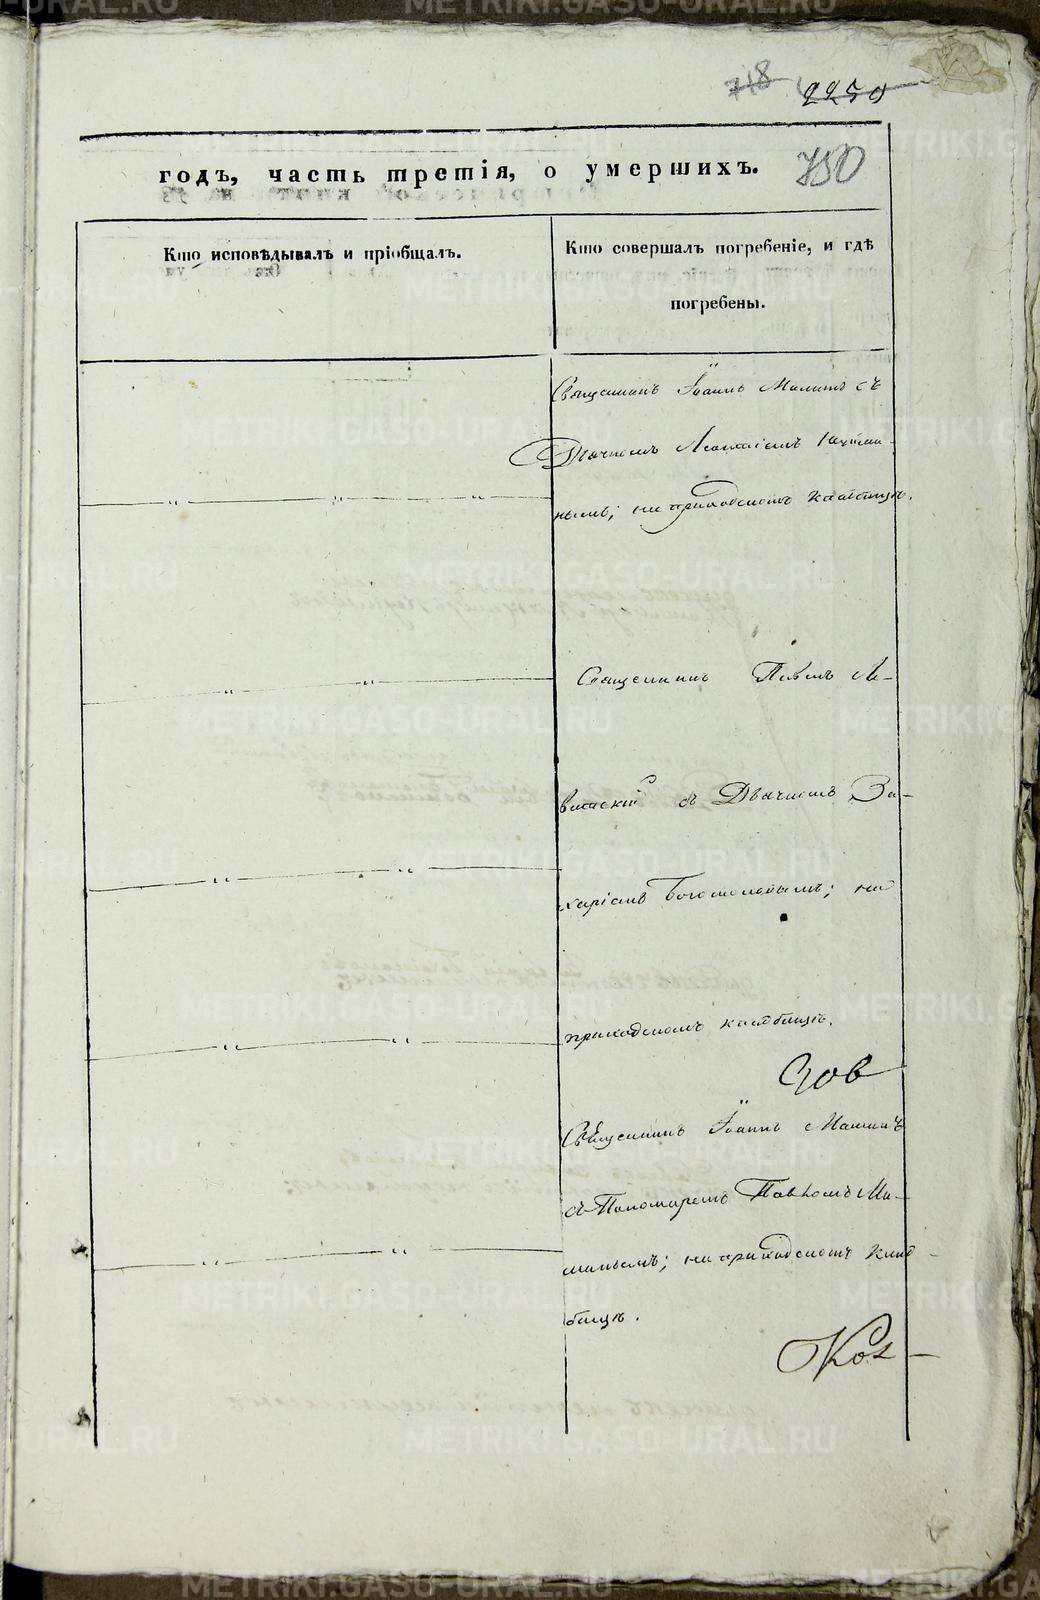 718 2250
годъ, часть третія, о умершихъ. 750
Кто исповѣдывалъ и пріобщалъ.
Кто совершалъ погребеніе, и гдѣ
погребены.
Священникъ Іоаннъ съ
Дьячкомъ
нымъ; на приходскомъ кладбищѣ.
Священникъ Павелъ Ле-
витскій съ Дьячкомъ За-
харіемъ Богомоловымъ; на
приходскомъ кладбищѣ.
Священникъ Іоаннъ
съ Пономаремъ Павломъ Ма-
; на приходскомъ клад-
бищѣ.
METRIKI.GASO-URAL.RU